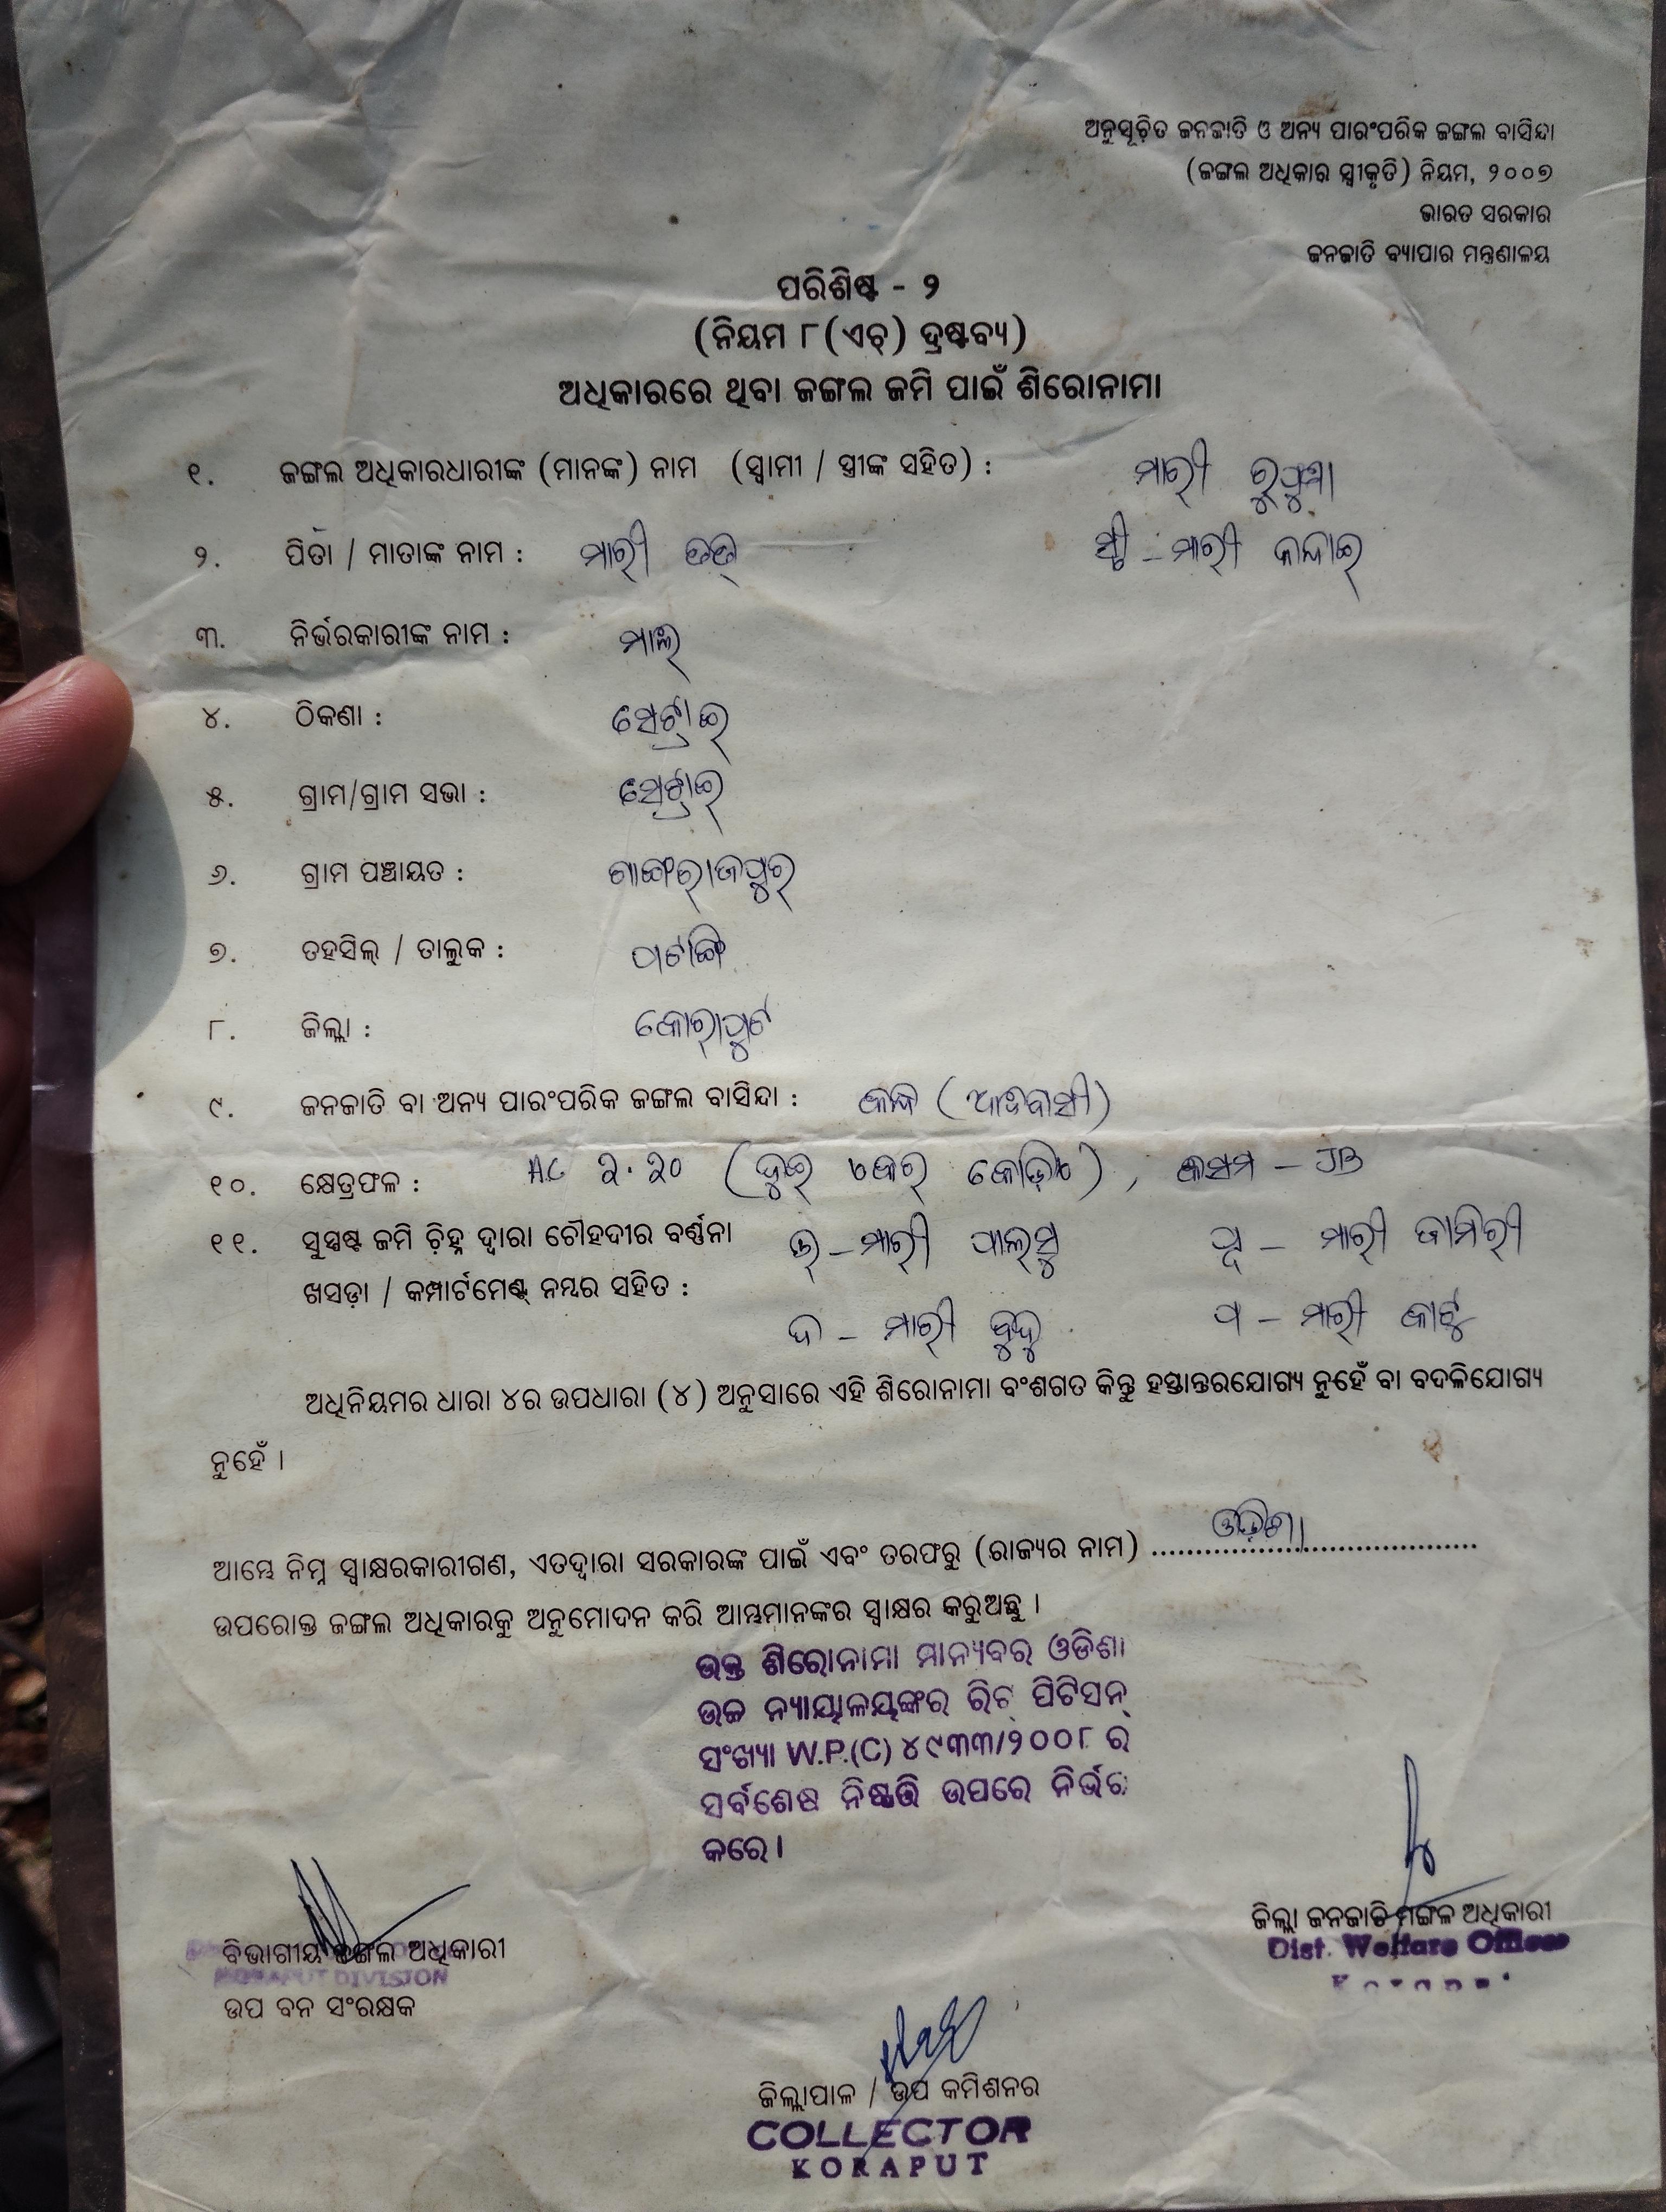 ଅନୁସୂଚିତ ଜନଜାତି ଓ ଅନ୍ୟ ପାରଂପରିକ ଜଙ୍ଗଲ ବାସିନ୍ଦା
(ଜଙ୍ଗଲ ଅଧିକାର ସ୍ୱୀକୃତି) ନିୟମ, ୨୦୦୭
ଭାରତ ସରକାର
ଜନଜାତି ବ୍ୟାପାର ମନ୍ତ୍ରଣାଳୟ
ପରିଶିଷ୍ଟ - ୨
(ନିୟମ ୮(ଏଚ୍) ଦ୍ରଷ୍ଟବ୍ୟ)
ଅଧିକାରରେ ଥିବା ଜଙ୍ଗଲ ଜମି ପାଇଁ ଶିରୋନାମା
୧. ଜଙ୍ଗଲ ଅଧିକାରଧାରୀଙ୍କ (ମାନଙ୍କ) ନାମ (ସ୍ୱାମୀ / ସ୍ତ୍ରୀଙ୍କ ସହିତ) : ମାରୀ
୨. ପିତା / ମାତାଙ୍କ ନାମ : ମାରୀ ସ୍ତ୍ରୀ - ମାରୀ
୩. ନିର୍ଭରକାରୀଙ୍କ ନାମ :
୪. ଠିକଣା :
୫. ଗ୍ରାମ/ଗ୍ରାମ ସଭା :
୬. ଗ୍ରାମ ପଞ୍ଚାୟତ :
୭. ତହସିଲ୍ / ତାଲୁକ : ପଟାଙ୍ଗି
୮. ଜିଲ୍ଲା : କୋରାପୁଟ
୯. ଜନଜାତି ବା ଅନ୍ୟ ପାରଂପରିକ ଜଙ୍ଗଲ ବାସିନ୍ଦା : କନ୍ଧ (ଆଦିବାସୀ)
୧୦. କ୍ଷେତ୍ରଫଳ : AC ୨.୨୦ (ଦୁଇ ଏକର କୋଡ଼ିଏ), କିସମ -
୧୧. ସୁସ୍ପଷ୍ଟ ଜମି ଚିହ୍ନ ଦ୍ୱାରା ଚୌହଦୀର ବର୍ଣ୍ଣନା ଉ - ମାରୀ ପୂ - ମାରୀ
ଖସଡ଼ା / କମ୍ପାର୍ଟମେଣ୍ଟ୍ ନମ୍ବର ସହିତ : ଦ - ମାରୀ ବୁଦୁ ପ - ମାରୀ
ଅଧିନିୟମର ଧାରା ୪ର ଉପଧାରା (୪) ଅନୁସାରେ ଏହି ଶିରୋନାମା ବଂଶଗତ କିନ୍ତୁ ହସ୍ତାନ୍ତରଯୋଗ୍ୟ ନୁହେଁ ବା ବଦଳିଯୋଗ୍ୟ
ନୁହେଁ ।
ଆମ୍ଭେ ନିମ୍ନ ସ୍ୱାକ୍ଷରକାରୀଗଣ, ଏତଦ୍ୱାରା ସରକାରଙ୍କ ପାଇଁ ଏବଂ ତରଫରୁ (ରାଜ୍ୟର ନାମ) ଓଡ଼ିଶା
ଉପରୋକ୍ତ ଜଙ୍ଗଲ ଅଧିକାରକୁ ଅନୁମୋଦନ କରି ଆମ୍ଭମାନଙ୍କର ସ୍ୱାକ୍ଷର କରୁଅଛୁ ।
ଉକ୍ତ ଶିରୋନାମା ମାନ୍ୟବର ଓଡିଶା
ଉଚ୍ଚ ନ୍ୟାୟାଳୟଙ୍କର ରିଟ୍ ପିଟିସନ୍
ସଂଖ୍ୟା W.P.(C) ୪୯୩୩/୨୦୦୮ ର
ସର୍ବଶେଷ ନିଷ୍ପତ୍ତି ଉପରେ ନିର୍ଭର
କରେ ।
ଜିଲ୍ଲା ଜନଜାତି ମଙ୍ଗଳ ଅଧିକାରୀ
Dist. Welfare Officer
ବିଭାଗୀୟ ଜଙ୍ଗଲ ଅଧିକାରୀ
KORAPUT DIVISION
ଉପ ବନ ସଂରକ୍ଷକ
ଜିଲ୍ଲାପାଳ / ଉପ କମିଶନର
COLLECTOR
KORAPUT